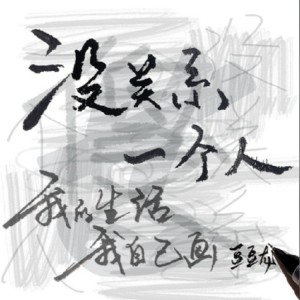 没关系
一个人
我的生活
我自己画
豆豆龙